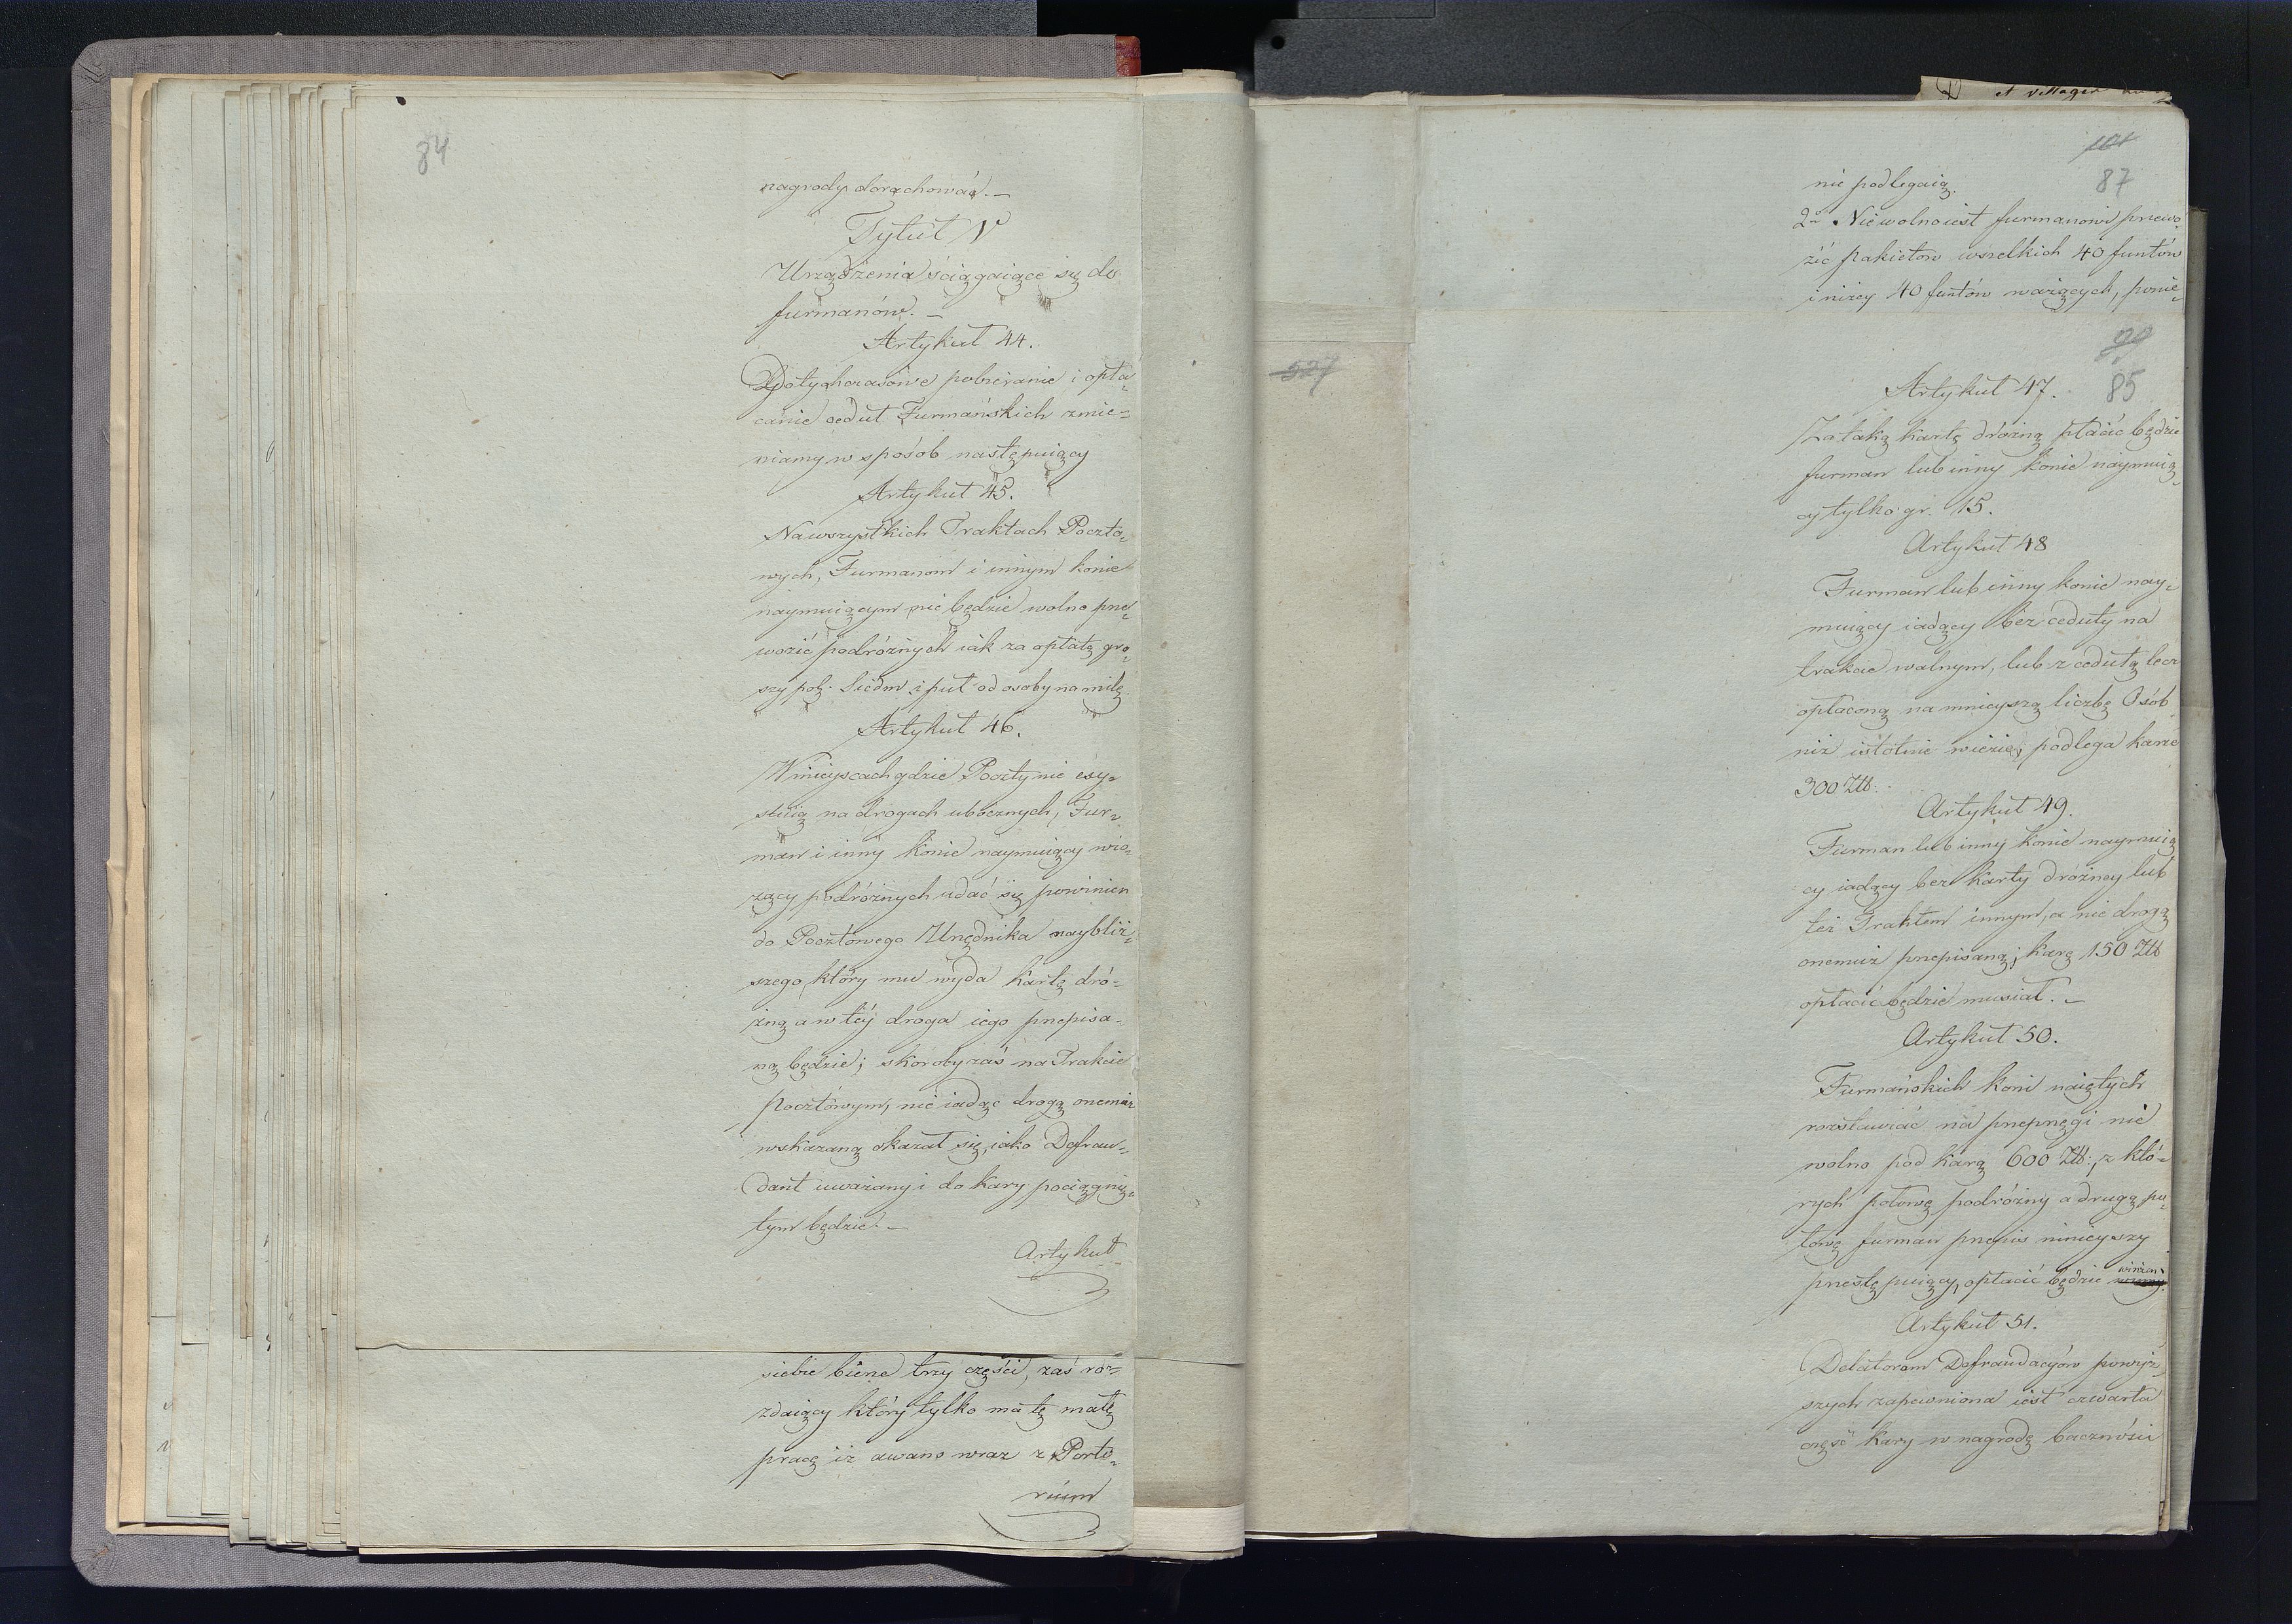 84
nagrody dorachować. –
Tytuł V
Urządzenia ściągaiące się do
furmanów. –
Artykuł 44.
Dotychczasowe pobieranie i opła-
canie cedut Furmańskich zmie-
niamy w sposób następuiący
Artykuł 45.
Na wszystkich Traktach Poczto-
wych, Furmanom i innym konie
naymuiącym nie będzie wolno prze-
wozić podróżnych iak za opłatą gro-
szy pol. siedm i puł od osoby na milę
Artykuł 46.
W mieyscach gdzie Poczty nie exy-
stuią na drogach ubocznych, Fur-
man i inny konie naymuiący wio-
zący podróżnych udać się powinien
do Pocztowego Urzędnika naybliż-
szego, który mu wyda kartę dró-
żną a w téy droga iego przepisa-
ną będzie; skoroby zaś na Trakcie
pocztowym, nie iadąc drogą onemuż
wskazaną okazał się, iako Defrau-
dant uważany i do kary pociągnię-
tym będzie. –
Artykuł
siebie bierze trzy części, zaś ro-
zdaiący który tylko ma tę małą
pracę iż awans wraz z Porto-
rium
527
101
87
nie podlegaią.
2o Nie wolno iest furmanowi przewo-
zić pakietow wszelkich 40 funtów
i niżey 40 funtów ważących, ponie-
85
Artykuł 47.
Za taką kartę dróżną płacić będzie
furman lub inny konie naymuią-
cy tylko gr. 15.
Artykuł 48
Furman lub inny konie nay-
muiący iadący bez ceduły na
trakcie walnym, lub z cedułą lecz
opłaconą na mnieyszą liczbę Osób
niż istotnie wiezie, podlega karze
300 Złł:
Artykuł 49.
Furman lub inny konie naymuią
cy iadący bez karty dróżney lub
też Traktem innym, a nie drogą
onemuż przepisaną; karę 150 Złł
opłacić będzie musiał. –
Artykuł 50.
Furmańskich koni naiętych
rozstawiać na przeprzęgi nie
wolno pod karą 600 Złł:, z któ-
rych połowę podróżny a drugą po-
łowę furman przepis ninieyszy
przestępuiący, opłacić będzie winien
Artykuł 51.
Delatorom Defraudacyów powyż-
szych zapewniona iest czwarta
część kary w nagrodę baczności